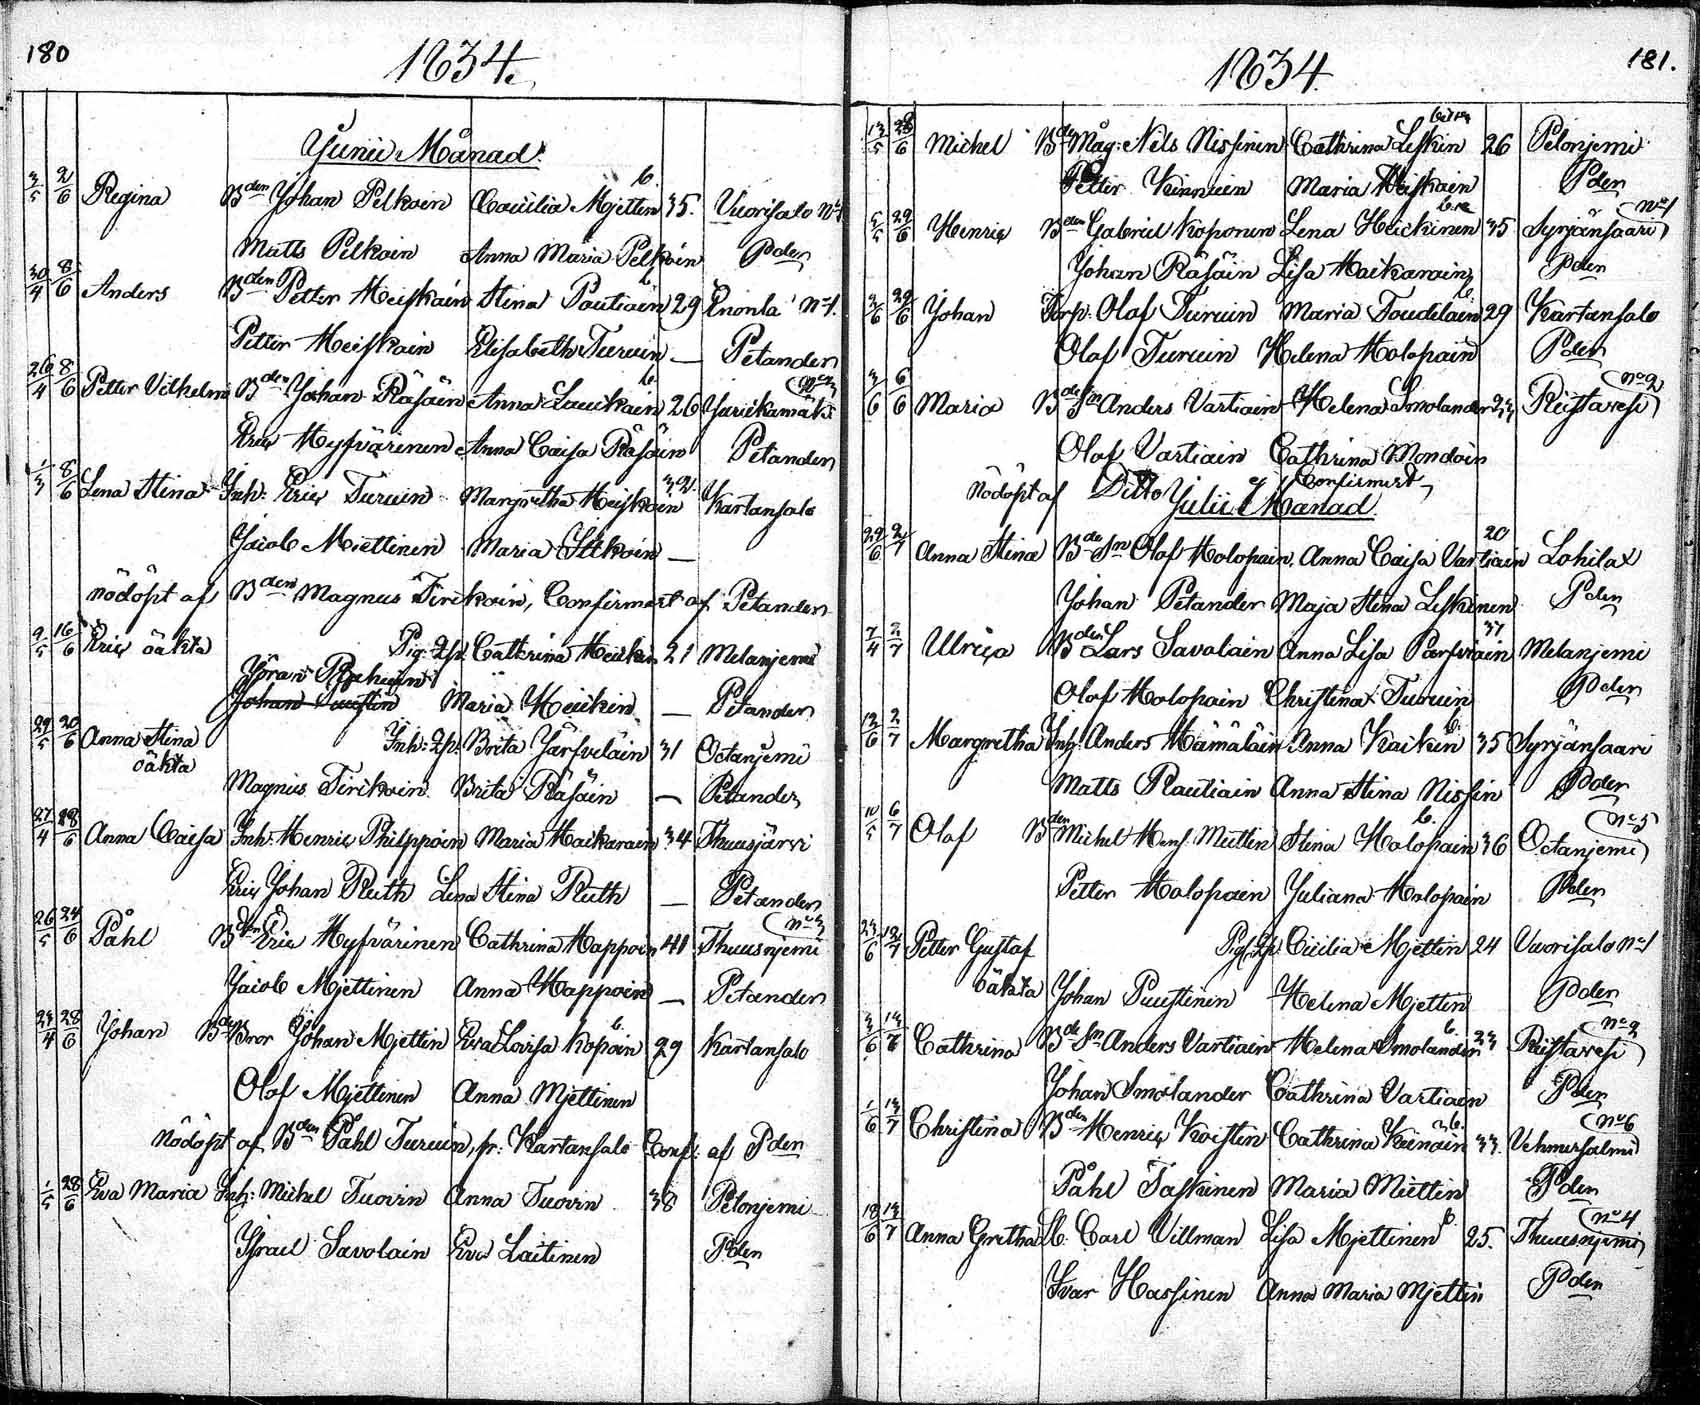 180
1834.
Junii Månad.
3/5 2/6 Regina Bden Johan Pelkoin Cæcilia Mjettin b. 35. Vuorisalo No 1
Matts Pelkoin Anna Maria Pelkoin Pder
30/4 8/6 Anders Bden Petter Heiskain Stina Pautiain b. 29 Enonla No 1.
Petter Heiskain Elisabeth Turuin — Petander
26/4 8/6 Petter Vilhelm Bden Johan Räsäin Anna Lauikain b. 26 Jurickamäki
Eric Hyfvärinen Anna Caisa Räsäin Petander
1/3 8/6 Lena Stina Inh: Eric Turuin Margretha Heiskain 32. Kartansalo
Jacob Miettinen Maria Silkoin —
nödöpt af Bden Magnus Tirikoin, Confirmert af Petander
9/5 16/6 Eric oäkta Pig: 2/3. Cathrina Heickin 21 Melanjemi
Jöran
Johan Maria Heickin — Petander
29/5 20/6 Anna Stina Inh: 2/3. Brita Järfveläin 31 Octanjemi
oäkta
Magnus Tirikoin Brita Räsäin — Petander
27/4 28/6 Anna Caisa Inh: Henric Philppoin Maria Haikarain 34 Thuusjärvi
Eric Johan Ruth Lena Stina Ruth — Petander
26/5 24/6 Påhl Bden Eric Hyfvärinen Cathrina Happoin 41 Thuusnjemi No 3
Jacob Mjettinen Anna Happoin — Petander
24/4 28/6 Johan Bde Bror Johan Mjettin Eva Lovisa Kopoin b. 29 Kartansalo
Olof Mjettinen Anna Mjettinen
Nödöpt af Bden Påhl Turuin, fr: Kartansalo Conf: af Pder
1/5 28/6 Eva Maria Inh: Michel Tuovin Anna Tuovin 38 Pelonjemi
Israel Savolain Eva Laitinen Pder
181.
1834.
13/5 28/6 Michel Bde Måg: Nils Nissinen Cathrina Leskin 26 Pelonjemi
Petter Kinnuin Maria Heiskain Pder
5/5 29/6 Henric Bden Gabriel Koponen Lena Heickinen 35 Syrjänsaari No 1
Johan Räsäin Lisa Haikarain Pder
2/6 29/6 Johan Torp: Olof Turuin Maria Toudelain b. 29 Kartansalo
Olof Turuin Helena Holopain Pder
3/6 6/6 Maria Bde Sn Anders Vartiain Helena Smolander 23 Riistavesi No 2
Olof Vartiain Cathrina Mondoin
nödöpt af Ditto Confirmert
Julii Månad.
29/6 2/7 Anna Stina Bde Sn Olof Holopain. Anna Caisa Vartiain 20 Lohilax
Johan Petander Maja Stina Leskinen Pder
7/4 2/7 Ulrica Bden Lars Savolain Anna Lisa Parfviain 37 Melanjemi
Olof Holopain Christina Turuin Pder
12/6 2/7 Margretha Inh: Anders Hämäläin Anna Kaikein b. 35 Syrjänsaari
Matts Rautiain Anna Stina Nissin Pder
10/5 6/7 Olof Bden Michel Hens. Miettin Stina Holopain b. 36 Octanjemi No 5
Petter Holopain Juliana Holopain Pder
23/6 12/7 Petter Gustaf Pig: 2/3. Cicilia Mjettin 24 Vuorisalo No 1
oäkta Johan Puustinen Helena Mjettin Pder
3/6 13/7 Cathrina Bde Sn Anders Vartiain Helena Smolander b. 23 Riistavesi No 2
Johan Smolander Cathrina Vartiain Pder
1/6 13/7 Christina Bden Henric Koistin Cathrina Keinäin b. 33. Vehmersalmi No 6
Påhl Taskinen Maria Miettin Pder
18/6 13/7 Anna Gretha Sk. Carl Villman Lisa Mjettinen b. 25. Thuusnjemi No 4
Ivar Hassinen Anna Maria Mjettin Pder